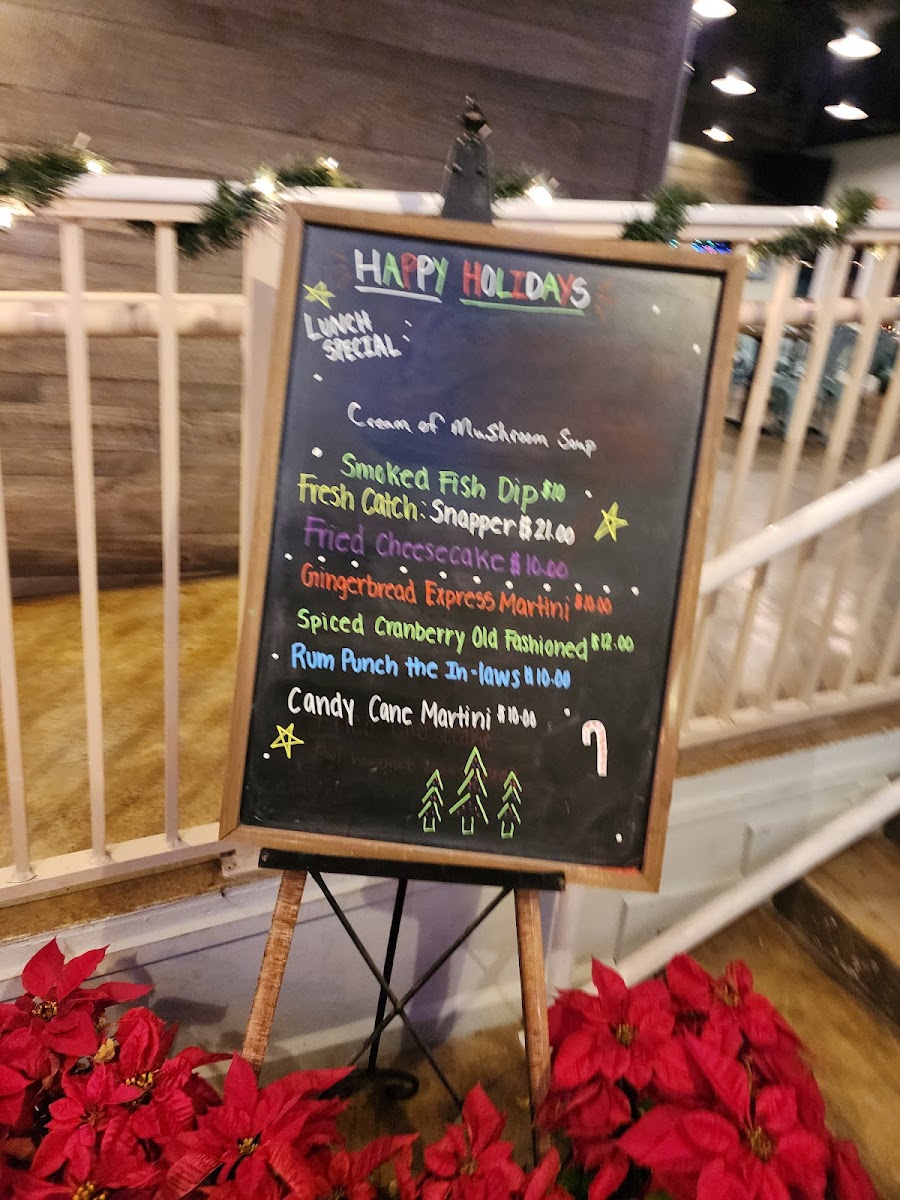 HAPPY HOLIDAYS
LUNCH
SPECIAL
Cream of Mushroom Soup
Smoked Fish Dip $10
Fresh Catch: Snapper $21.00
Fried Cheesecake $10.00
Gingerbread Express Martini $10.00
Spiced Cranberry Old Fashioned $12.00
Rum Punch the In-laws $10.00
Candy Cane Martini $10.00